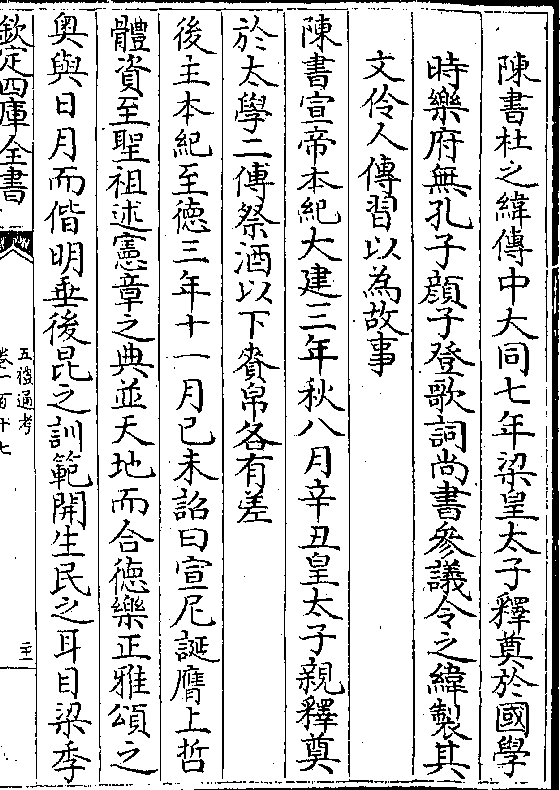 陳書杜之緯傳中大同七年梁皇太子釋奠於國學
時樂府無孔子顔子登歌詞尚書參議令之緯製其
文伶人傳習以為故事
陳書宣帝本紀大建三年秋八月辛丑皇太子親釋奠
於太學二傳祭酒以下賚帛各有差
後主本紀至德三年十一月己未詔曰宣尼誕膺上哲
體資至聖祖述憲章之典並天地而合德樂正雅頌之
奥與日月而偕明垂後昆之訓範開生民之耳目梁季
欽定四庫全書
五禮通考
卷一百十七